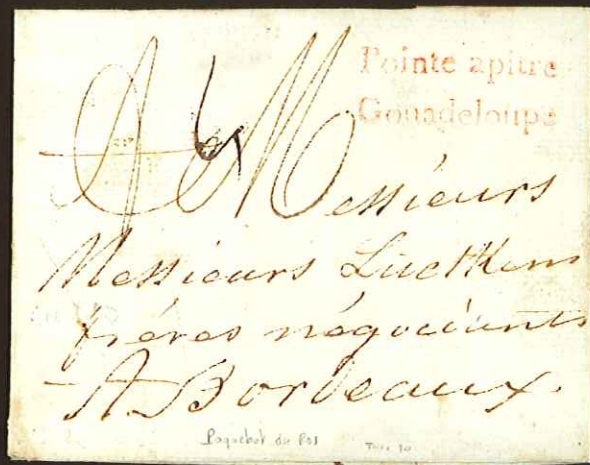 Pointe apitre
Gouadeloupe
A Messieurs
Messieurs Luetkens
frères négociants
A Bordeaux.
Paquebot du Roi